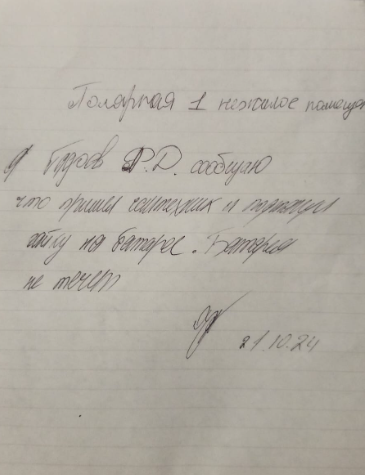 Полярная 1 нежилое помещен
Я Р.D. сообщаю
что пришел сантехник и подтянул
гайку на батарее. Батарея
не течет
21.10.24